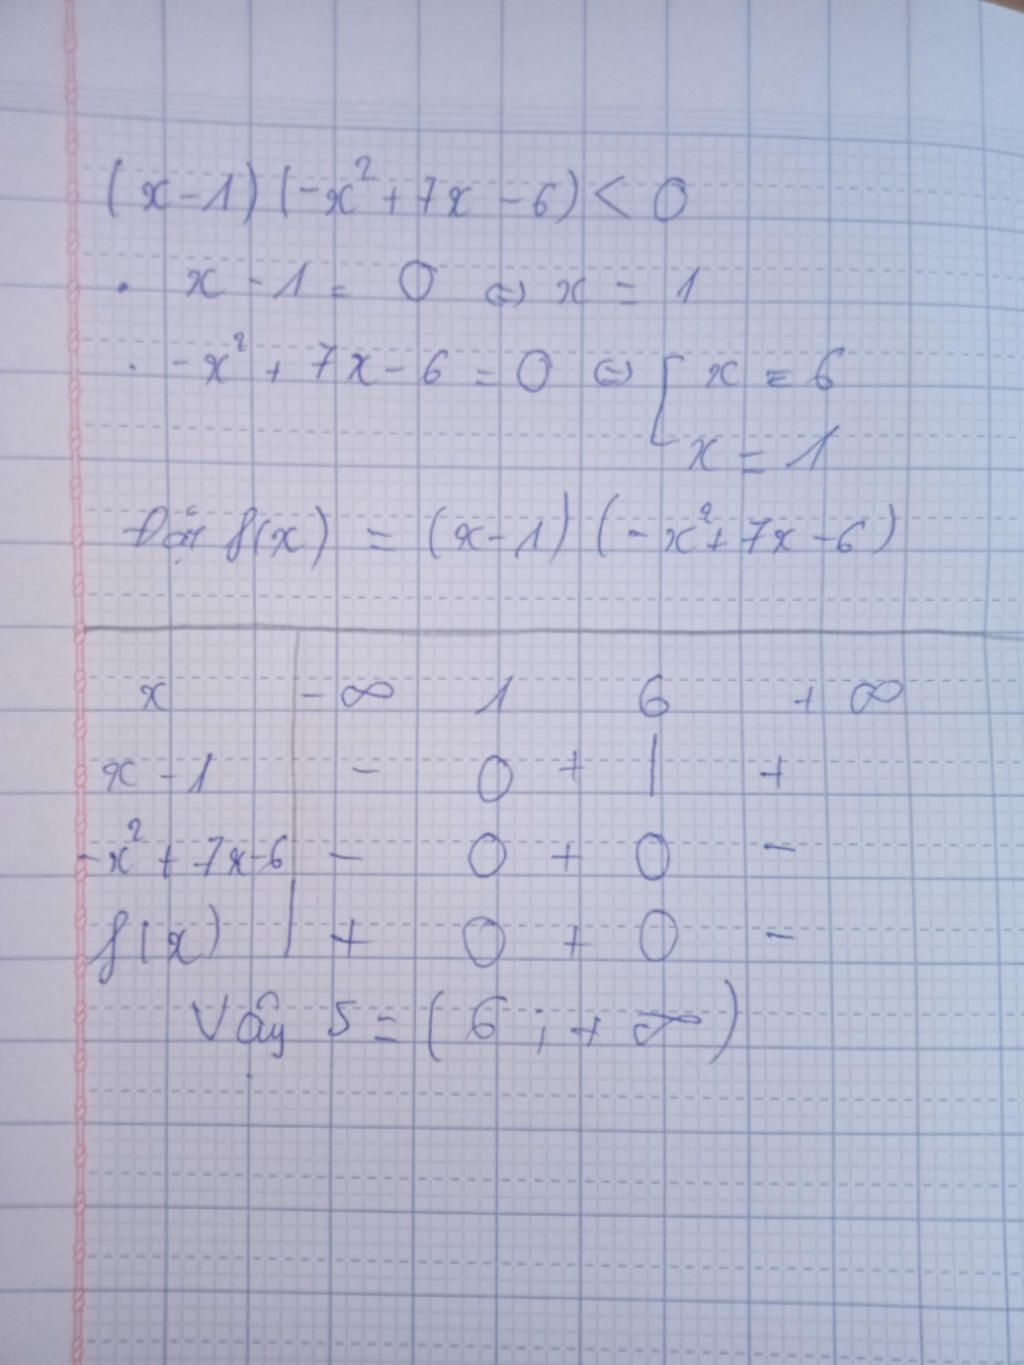 (x-1)(-x²+7x-6)<0
· x-1=0 ⇔ x=1
· -x²+7x-6=0 ⇔ [ x=6
x=1
Đặt f(x) = (x-1)(-x²+7x-6)
x | -∞ 1 6 +∞
x-1 | - 0 + | +
-x²+7x-6 | - 0 + 0 -
f(x) | + 0 + 0 -
Vậy S=(6;+∞)